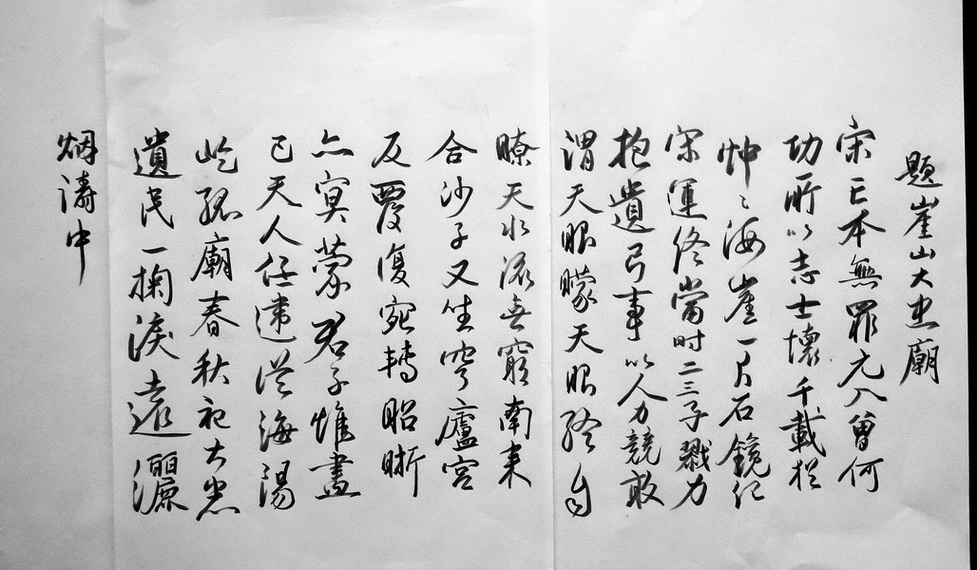 題崖山大忠廟
宋亡本無罪元入曾何
功所以志士懷千載抱
忡〻海崖一片石鐫紀
宋運終當时二三子戮力
抱遺弓事以人力競敢
謂天眼矇天眼終自
瞭天水流無窮南来
合沙子又生穹廬宮
反覆復宛轉昭晰
亦冥蒙君子惟盡
已天人任違從海湯
屹孤廟春秋祀大忠
遺民一掬淚遠灑
烟濤中